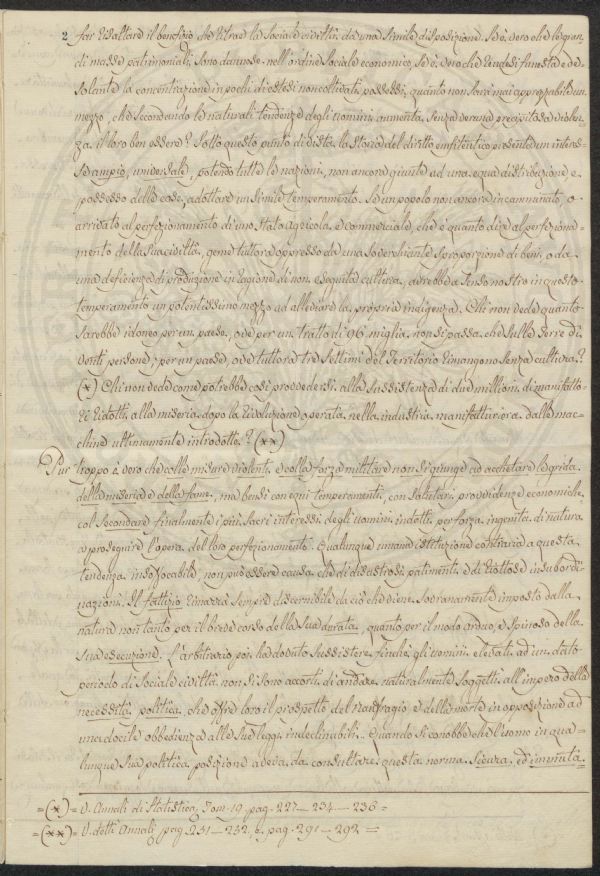 2 far risaltare il benefizio che ritrae la Sociale civiltà da una simile disposizione. Se è vero che le gran-
di masse patrimoniali, sono dannose nell'ordine Sociale economico, se è vero che rendesi funesta e de-
solante la concentrazione in pochi di estesi non coltivati possessi, quanto non sarà mai apprezzabile un
mezzo, che secondando le naturali tendenze degli uomini aumenta, senza veruna precipitosa violen-
za, il loro ben essere? Sotto questo punto di vista la storia del diritto enfiteutico presenta un interes-
se ampio, universale, potendo tutte le nazioni, non ancora giunte ad una equa distribuzione e
possesso delle cose, adottare un simile temperamento. Se un popolo non ancora incamminato, o
arrivato al perfezionamento di uno stato Agricola, e commerciale, che è quanto dire al perfeziona-
mento della sua civiltà, geme tuttora oppresso da una soverchiante sproporzione di beni, o da
una deficienza di produzione in ragione di non eseguita cultura, avrebbe a senso nostro in questo
temperamento un potentissimo mezzo ad alleviare la propria indigenza. Chi non vede quanto
sarebbe idoneo per un paese, ove per un tratto di 96 miglia, non si passa che sulle terre di
venti persone; per un paese, ove tuttora tre settimi del Territorio rimangono senza cultura?
(*) Chi non vede come potrebbe così provvedersi alla sussistenza di due millioni di manifatto-
ri ridotti alla miseria dopo la rivoluzione operata nella industria manifatturiera dalle mac-
chine ultimamente introdotte? (**)
Pur troppo è vero che colle misure violenti, e colla forza militare non si giunge ad acchetare le grida
della miseria e della fame, ma bensì con equi temperamenti, con salutari provvidenze economiche
col secondare finalmente i più sacri interessi degli uomini indotti per forza ingenita di natura
a proseguire l'opera del loro perfezionamento. Qualunque umana istituzione contraria a questa
tendenza insoffocabile, non può essere causa che di disastrosi patimenti, e di riottose insubordi-
nazioni. Il fattizio rimarrà sempre discernibile da ciò che viene sovranamente imposto dalla
natura non tanto per il breve corso della sua durata, quanto per il modo arduo, e spinoso della
sua esecuzione. L'arbitrario poi ha dovuto sussistere finchè gli uomini elevati ad un dato
periodo di Sociale civiltà non si sono accorti di andare naturalmente soggetti all'impero della
necessità politica, che offre loro il prospetto del naufragio e della morte in opposizione ad
una docile obbedienza alle sue leggi indeclinabili. Quando si conobbe che l'uomo in qua-
lunque sua politica posizione aveva da consultare questa norma sicura, ed immuta-
=(*)= V. Annali di Statistica, Tom. 19. pag. 227 — 234 — 236 =
=(**)= V. detti Annali, pag. 231 — 232, e pag. 291 — 292 =